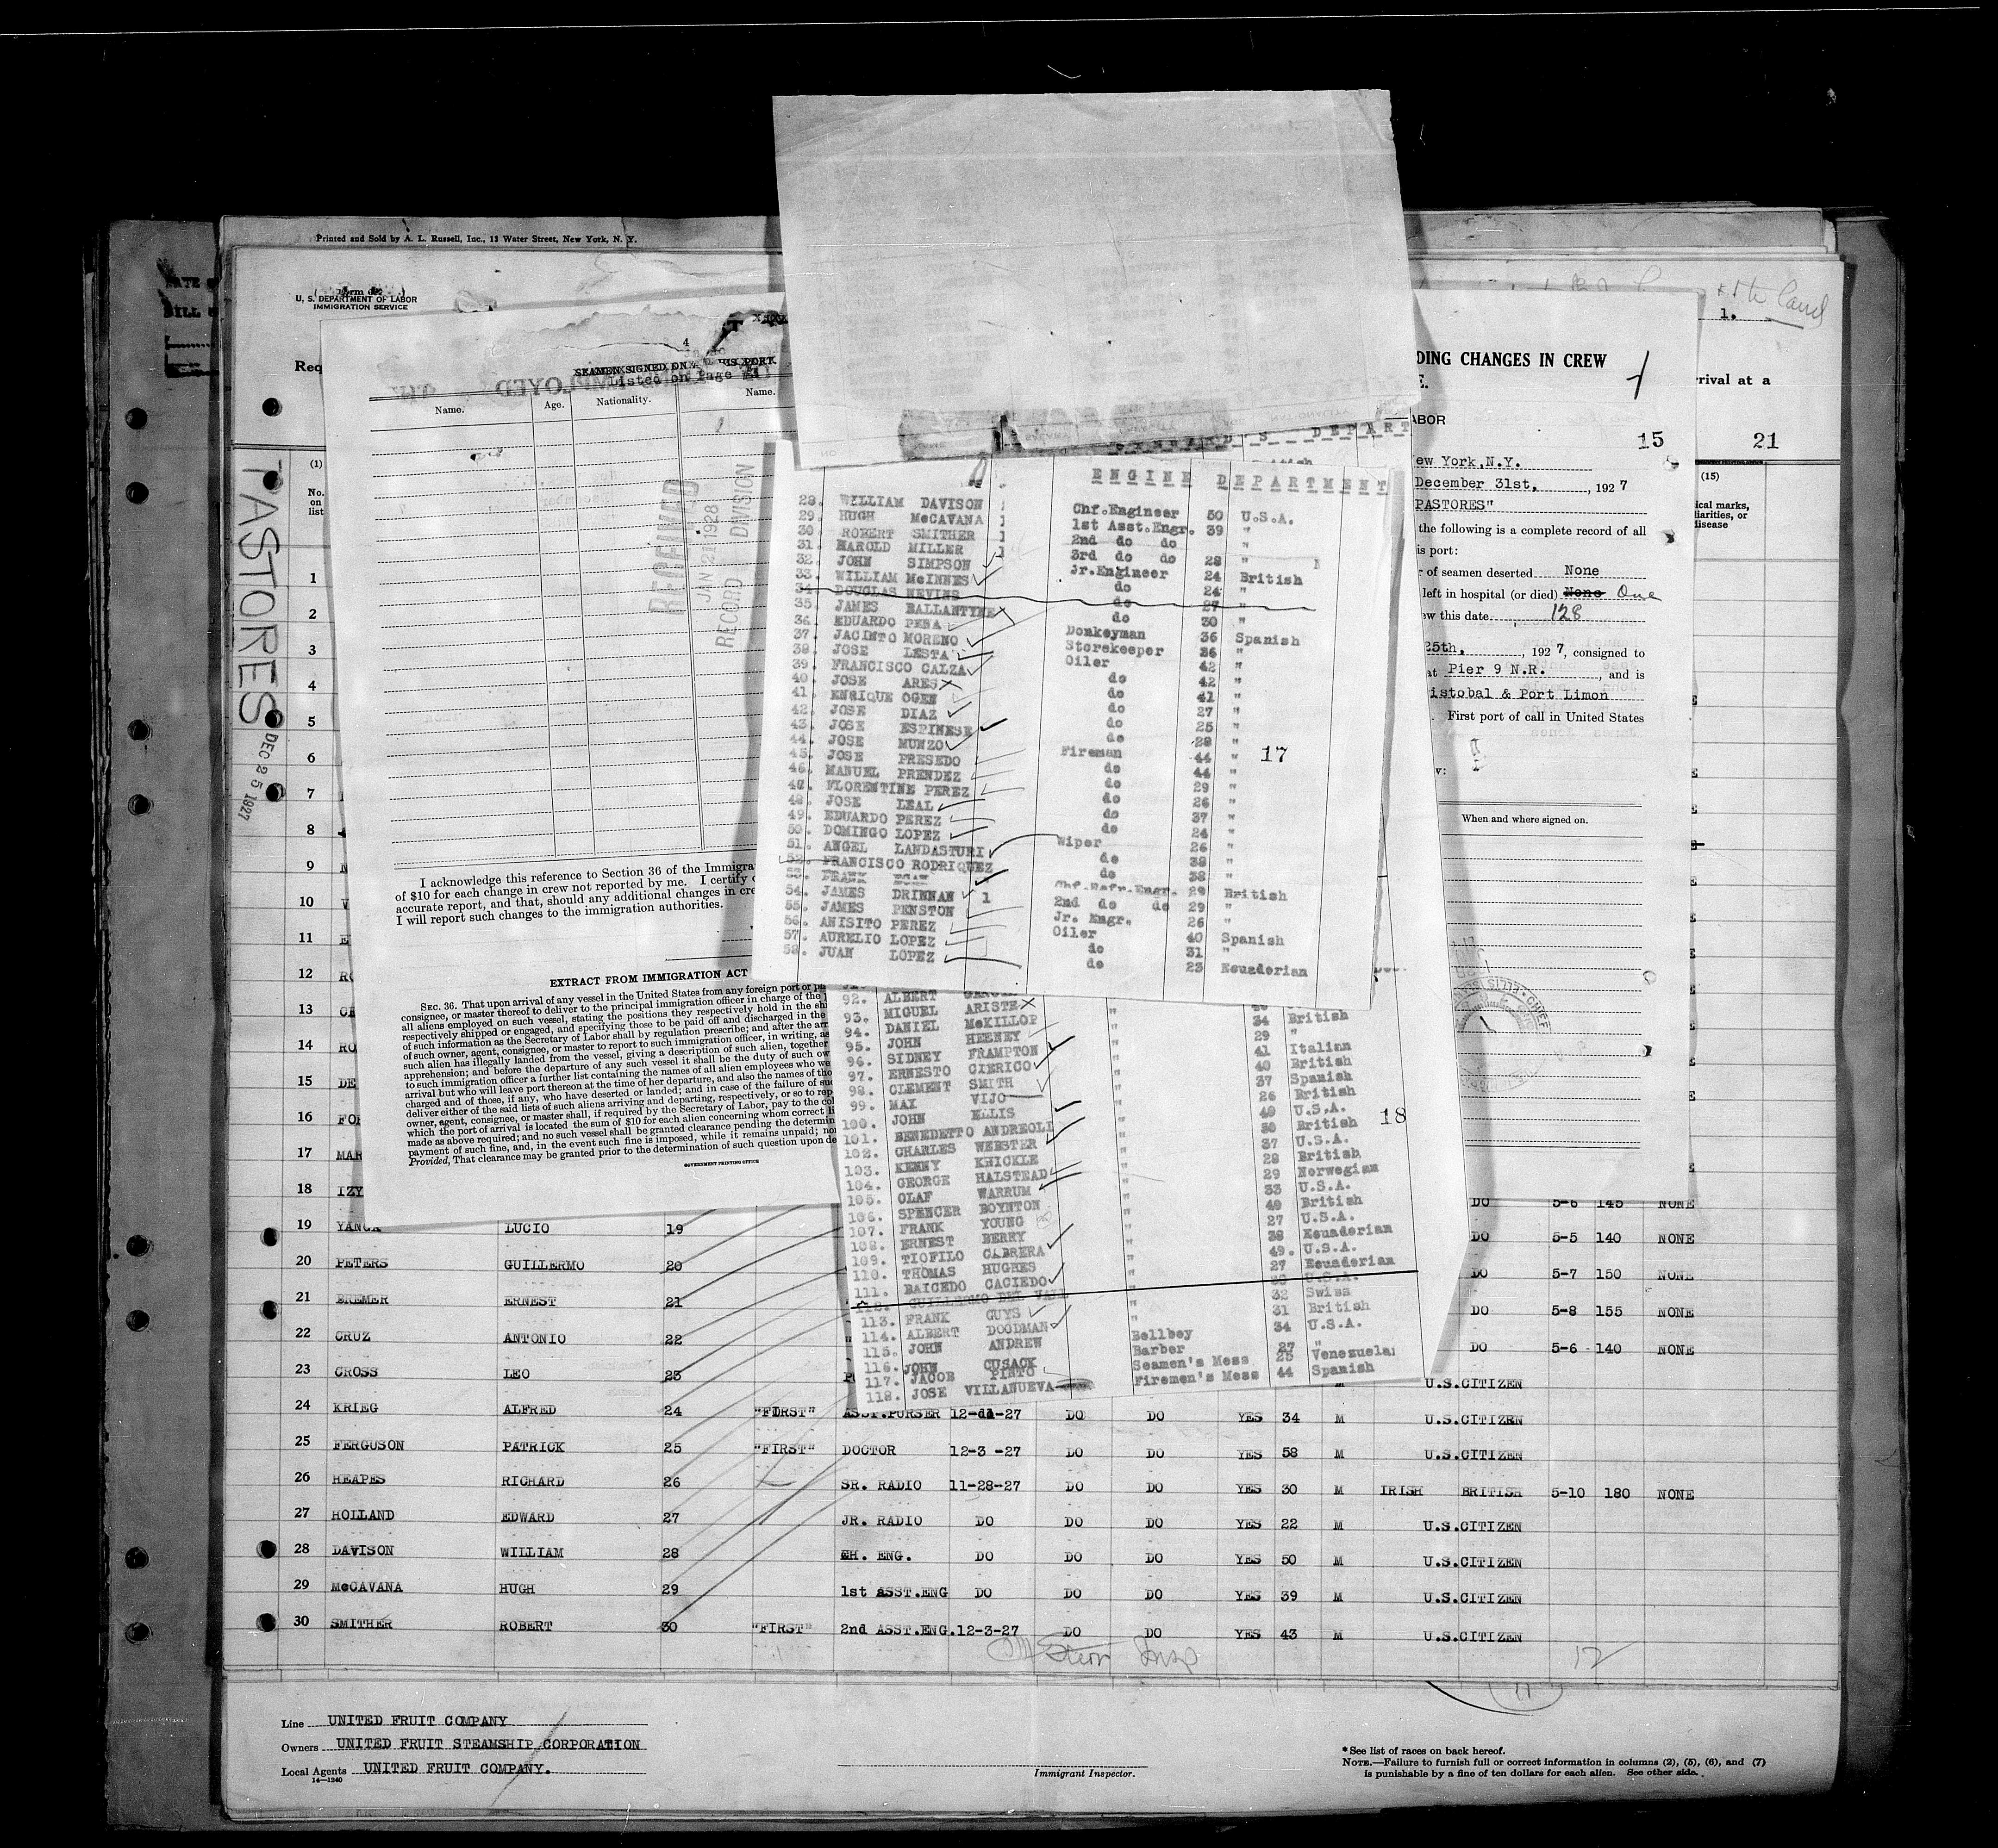 Printed and Sold by A. L. Russell, Inc., 13 Water Street, New York, N. Y.
U. S. DEPARTMENT OF LABOR
IMMIGRATION SERVICE
Req
1.
rrival at a
21
PASTORES
DEC 25 1927
(1)
No. on list
(15)
ical marks,
liarities, or
disease
4
SEAMEN SIGNED ON AT THIS PORT.
Listed on Page
Name. Age. Nationality. Name.
RECEIVED
JAN 21 1928
RECORD DIVISION
I acknowledge this reference to Section 36 of the Immigra
of $10 for each change in crew not reported by me. I certify
accurate report, and that, should any additional changes in cre
I will report such changes to the immigration authorities.
EXTRACT FROM IMMIGRATION ACT
SEC. 36. That upon arrival of any vessel in the United States from any foreign port or
consignee, or master thereof to deliver to the principal immigration officer in charge of the
all aliens employed on such vessel, stating the positions they respectively hold in the sh
respectively shipped or engaged, and specifying those to be paid off and discharged in the
of such information as the Secretary of Labor shall by regulation prescribe; and after the arr
of such owner, agent, consignee, or master to report to such immigration officer, in writing, as
such alien has illegally landed from the vessel, giving a description of such alien, together
apprehension; and before the departure of any such vessel it shall be the duty of such ow
to such immigration officer a further list containing the names of all alien employees who we
arrival but who will leave port thereon at the time of her departure, and also the names of tho
charged and of those, if any, who have deserted or landed; and in case of the failure of suc
deliver either of the said lists of such aliens arriving and departing, respectively, or so to rep
owner, agent, consignee, or master shall, if required by the Secretary of Labor, pay to the col
which the port of arrival is located the sum of $10 for each alien concerning whom correct li
made as above required; and no such vessel shall be granted clearance pending the determin
payment of such fine, and, in the event such fine is imposed, while it remains unpaid; nor
Provided, That clearance may be granted prior to the determination of such question upon de
GOVERNMENT PRINTING OFFICE
ENGINE DEPARTMENT
28. WILLIAM DAVISON Chf.Engineer 50 U.S.A.
29. HUGH McCAVANA 1st Asst.Engr. 39 "
30. ROBERT SMITHER 2nd do do "
31. HAROLD MILLER 3rd do do 28 "
32. JOHN SIMPSON Jr.Engineer 24 British
33. WILLIAM McINNES do 24 "
34. DOUGLAS NEVINS do 27 "
35. JAMES BALLANTYNE do 30 "
36. EDUARDO PENA Donkeyman 36 Spanish
37. JACINTO MORENO Storekeeper 36 "
38. JOSE LESTA Oiler 42 "
39. FRANCISCO CALZA do 42 "
40. JOSE ARES do 41 "
41. ENRIQUE OGEN do 27 "
42. JOSE DIAZ do 25 "
43. JOSE ESPINESE do 28 "
44. JOSE MUNZO Fireman 44 "
45. JOSE PRESEDO do 44 "
46. MANUEL PRENDEZ do 29 "
47. FLORENTINE PEREZ do 26 "
48. JOSE LEAL do 37 "
49. EDUARDO PEREZ do 24 "
50. DOMINGO LOPEZ Wiper 26 "
51. ANGEL LANDASTURI do 38 "
52. FRANCISCO RODRIQUEZ do 38 "
53. FRANK EGAN Chf.Refr.Engr. 29 British
54. JAMES DRINNAN 1 2nd do do 29 "
55. JAMES PENSTON Jr. Engr. 26 "
56. ANISITO PEREZ Oiler 40 Spanish
57. AURELIO LOPEZ do 31 "
58. JUAN LOPEZ do 23 Ecuadorian
17
92. ALBERT
93. MIGUEL ARISTE " 34 British
94. DANIEL McKILLOP 29 "
95. JOHN HEENEY " 41 Italian
96. SIDNEY FRAMPTON 40 British
97. ERNESTO CIERICO " 37 Spanish
98. CLEMENT SMITH 26 British
99. MAX VIJO " 40 U.S.A.
100. JOHN ELLIS British
101. BENEDETTO ANDREOLI 37 U.S.A.
102. CHARLES WEBSTER " 28 British
103. KENNY KHICKLE 29 Norwegian
104. GEORGE HALSTEAD " 33 U.S.A.
105. OLAF WARRUM 40 British
106. SPENCER BOYNTON " 27 U.S.A.
107. FRANK YOUNG 38 Ecuaderian
108. ERNEST BERRY " 49. U.S.A.
109. TIOFILO CABRERA 27 Ecuaderian
110. THOMAS HUGHES " U.S.A.
111. BAICEDO CACIEDO 32 Swiss
112. GUILLERMO DEL VALL " 31 British
113. FRANK GUYS 34 U.S.A.
114. ALBERT DOODMAN Bellboy 27 "
115. JOHN ANDREW Barber 25 Venezuela
116. JOHN CUSACK Seamen's Mess 44 Spanish
117. JACOB PINTO Firemen's Mess
118. JOSE VILLANUEVA
18
DING CHANGES IN CREW
E.
ABOR
15
ew York,N.Y.
December 31st. , 1927
PASTORES"
the following is a complete record of all
is port:
r of seamen deserted None
left in hospital (or died) None One
ew this date 128
25th. , 1927, consigned to
at Pier 9 N.R. , and is
istobal & Port Limon
. First port of call in United States
When and where signed on.
1
2
3
4
5
6
7
8
9
10
11
12 RO
13
14 RO
15 DE
16 FO
17 MAR
18 IZY DO 5-6 145 NONE
19 YANCA LUCIO 19 DO 5-5 140 NONE
20 PETERS GUILLERMO 20 DO 5-7 150 NONE
21 BREMER ERNEST 21 DO 5-8 155 NONE
22 CRUZ ANTONIO 22 DO 5-6 140 NONE
23 CROSS LEO 23 M U.S.CITIZEN
24 KRIEG ALFRED 24 "FIRST" ASST.PURSER 12-dd-27 DO DO YES 34 M U.S.CITIZEN
25 FERGUSON PATRICK 25 "FIRST" DOCTOR 12-3 -27 DO DO YES 58 M U.S.CITIZEN
26 HEAPES RICHARD 26 SR. RADIO 11-28-27 DO DO YES 30 M IRISH BRITISH 5-10 180 NONE
27 HOLLAND EDWARD 27 JR. RADIO DO DO DO YES 22 M U.S.CITIZEN
28 DAVISON WILLIAM 28 CH. ENG. DO DO DO YES 50 M U.S.CITIZEN
29 McCAVANA HUGH 29 1st ASST.ENG DO DO DO YES 39 M U.S.CITIZEN
30 SMITHER ROBERT 30 "FIRST" 2nd ASST.ENG.12-3-27 DO DO YES 43 M U.S.CITIZEN
Insp
12
11
Line UNITED FRUIT COMPANY
Owners UNITED FRUIT STEAMSHIP CORPORATION
Local Agents UNITED FRUIT COMPANY.
14—1240
Immigrant Inspector.
* See list of races on back hereof.
NOTE.—Failure to furnish full or correct information in columns (2), (5), (6), and (7)
is punishable by a fine of ten dollars for each alien. See other side.